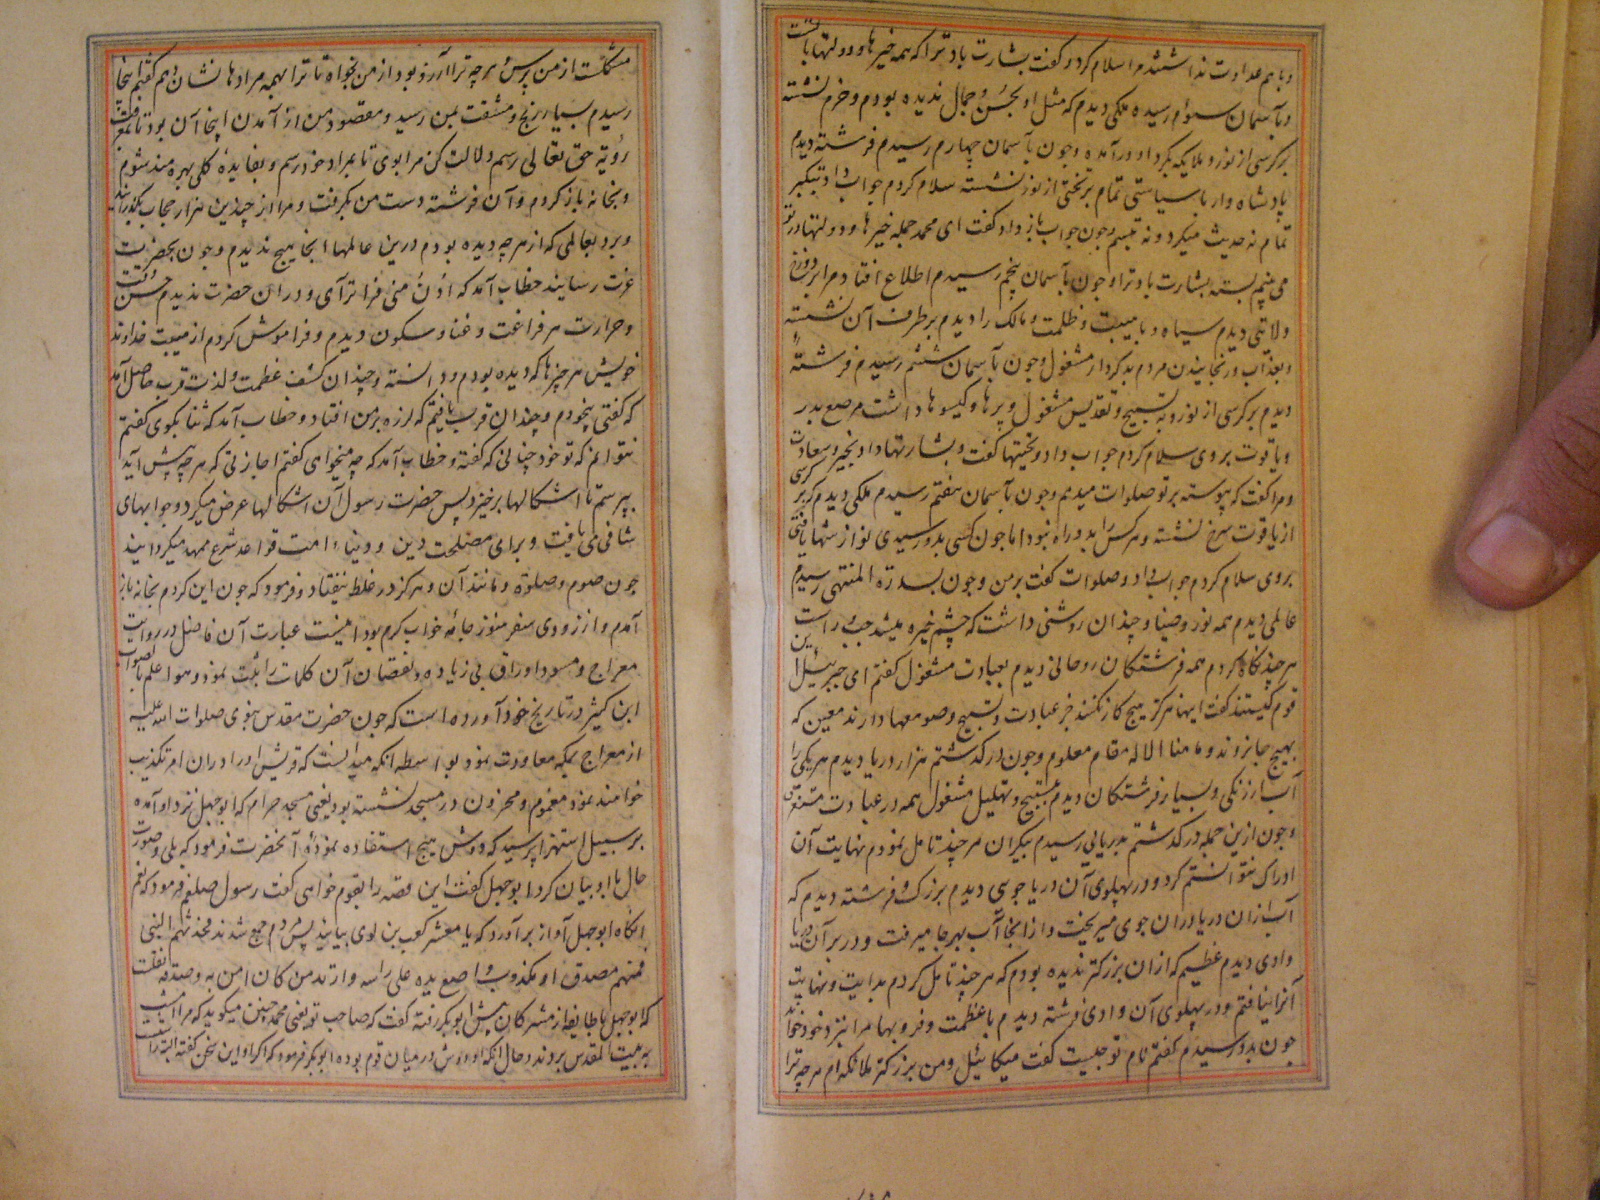 و با هم عداوت نداشتند مرا سلام کرد و گفت بشارت باد ترا که همه خیرها و دولتها با تست
و بآسمان سیوم رسیده ملکی دیدم که مثل او بحسن و جمال ندیده بودم و خرم نشسته
بر کرسی از نور و ملایکه بکرد او درآمده و چون بآسمان چهارم رسیدم فرشته دیدم
پادشاه وار با سیاستی تمام بر تختی از نور نشسته سلام کردم جواب داد بتکبر
تمام نه حدیث میکرد و نه تبسم و چون جواب باز داد گفت ای محمد جمله خیرها و دولتها در تو
می بینم بسته بشارت باد ترا و چون بآسمان پنجم رسیدم اطلاع افتاد مرا بر دوزخ
ولایتی دیدم سیاه و با هیبت و ظلمت و مالک را دیدم بر طرف آن نشسته
و بعذاب و رنجانیدن مردم بدکردار مشغول و چون بآسمان ششم رسیدم فرشته
دیدم بر کرسی از نور و به تسبیح و تقدیس مشغول و پرها و کیسوها داشت مرصع بدر
و یاقوت بر وی سلام کردم جواب داد و تحیتها گفت و بشارتها داد بخیر و سعادت
و مرا گفت که پیوسته بر تو صلوات میدهم و چون بآسمان هفتم رسیدم ملکی دیدم بر کرسی
از یاقوت سرخ نشسته و هر کس را بدو راه نبود اما چون کسی بدو رسیدی نوازشها یافتی
بر وی سلام کردم جواب داد و صلوات گفت بر من و چون بسدرة المنتهی رسیدم
عالمی دیدم همه نور و ضیا و چندان روشنی داشت که چشم خیره میشد چپ و راست
هر چند نکاه کردم همه فرشتکان روحانی دیدم بعبادت مشغول گفتم ای جبرئیل این
قوم کیستند گفت اینها هرکز هیچ کار نکنند جز عبادت و تسبیح و صومعها دارند معین که
بهیچ جا نروند و ما منا الا له مقام معلوم و چون درگذشتم هزار دریا دیدم هر یکی را
و بسیار فرشتکان دیدم بتسبیح و تهلیل مشغول همه در عبادت مستغرق
و چون ازین جمله درگذشتم بدریائی رسیدم بیکران هر چند تامل نمودم نهایت آن
ادراک نتوانستم کرد و در پهلوی آن دریا جوی دیدم بزرگ و فرشته دیدم که
آب ازان دریا دران جوی میریخت و از انجا آب بهر جا میرفت و در بر آن دریا
وادی دیدم عظیم که ازان بزرکتر ندیده بودم که هر چند تامل کردم بدایت و نهایت
آنرا نیافتم و در پهلوی آن وادی فرشته دیدم با عظمت و فر و بها مرا نزد خود خواند
چون بدو رسیدم گفتم نام تو چیست گفت میکائیل و من بزرکتر ملائکه ام هر چه ترا
مشکلست از من پرس و هر چه ترا آرزو بود از من بخواه تا ترا بهمه مرادها نشان دهم گفتم اینجا
رسیدم بسیار رنج و مشقت بمن رسید و مقصود من از آمدن اینجا آن بود تا بمعرفت
رؤیة حق تعالی رسم دلالت کن مرا بوی تا بمراد خود رسم و بفایدهٔ کلی بهره مند شوم
و بخانه باز کردم و آن فرشته دست من بکرفت و مرا از چندین هزار حجاب بکذرانید
و برد بعالمی که از هر چه دیده بودم درین عالمها آنجا هیچ ندیدم و چون بحضرت
عزت رسانید خطاب آمد که ادن منی فراتر آی و دران حضرت ندیدم حس و حرکت
و حرارت هم فراغت و غنا و سکون دیدم و فراموش کردم از هیبت خداوند
خویش هر چیزها که دیده بودم و دانسته و چندان کشف عظمت و لذت قرب حاصل آمد
که گفتی بیخودم و چندان قرب یافتم که لرزه بر من افتاد و خطاب آمد که ثنا بکوی گفتم
نتوانم که تو خود چنانی که گفته و خطاب آمد که چه میخواهی گفتم اجازتی که هر چه پیش آید
بپرسم تا اشکالها برخیزد پس حضرت رسول آن اشکالها عرض میکرد و جوابهای
شافی می یافت و برای مصلحت دین و دنیاء امت قواعد شرع ممهد میکردانید
چون صوم و صلوة و مانند آن و هرکز در غلط نیفتاد و فرمود که چون این کردم بخانه باز
آمدم و از زودی سفر هنوز جامه خواب گرم بود اینست عبارت آن فاضل در روایت
معراج و مسود اوراق بی زیاده و نقصان آن کلمات را ثبت نمود و هو اعلم بالصواب
ابن کثیر در تاریخ خود آورده است که چون حضرت مقدس نبوی صلوات الله علیه
از معراج بمکه معاودت نمود بواسطه انکه میدانست که قریش او را دران امر تکذیب
خواهند نمود مغموم و محزون در مسجد نشسته بود یعنی مسجد حرام که ابوجهل نزد او آمده
بر سبیل استهزا پرسید که دوش هیچ استفاده نمودی آنحضرت فرمود که بلی و صورت
حال با او بیان کرد ابوجهل گفت این قصه را بقوم خواهی گفت رسول صلعم فرمود که نعم
انکاه ابوجهل آواز برآورد که یا معشر کعب بن لوی بیایید پس مردم جمع شدند فحدثهم النبی
فمنهم مصدق او مکذوب واضع یده علی راسه و ارتد من کان امن به و صدقه
که ابوجهل با طایفه از مشرکان پیش ابوبکر رفته گفت که صاحب تو یعنی محمد چنین میگوید که مرا امشب
به بیت المقدس بردند و حال انکه او دوش در میان قوم بوده ابوبکر فرمود که اگر او این سخن گفته البته راست